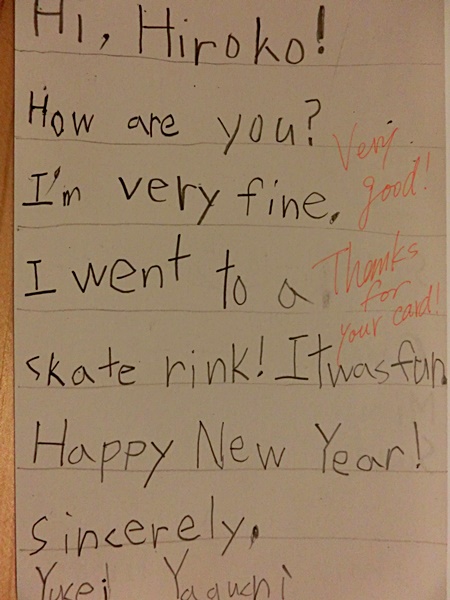 Hi, Hiroko!
How are you?
I'm very fine.
Very good!
I went to a
Thanks
for
your card!
skate rink! It was fun
Happy New Year!
sincerely,
Yaguchi